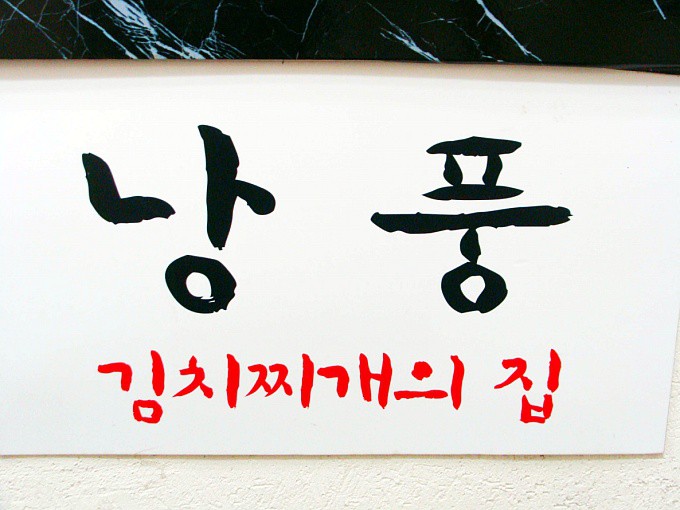 낭 풍
김치찌개의 집